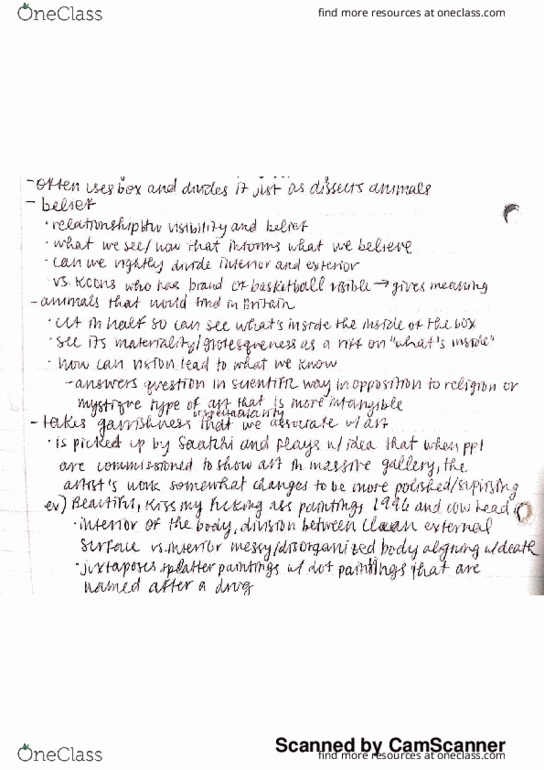 OneClass
find more resources at oneclass.com
- often uses box and divides it just as dissects animals
- belief
· relationship btw visibility and belief
· what we see/how that informs what we believe
· can we rightly divide interior and exterior
vs. Koons who has brand of basketball visible → gives meaning
- animals that would find in Britain
· cut in half so can see what's inside the inside of the box
· see its materiality/grotesqueness as a riff on "what's inside"
· how can vision lead to what we know
- answers question in scientific way in opposition to religion or
mystique type of art that is more intangible
- takes garrishness that we associate w/ art
· is picked up by Saatchi and plays w/ idea that when ppl
are commissioned to show art in massive gallery, the
artist's work somewhat changes to be more polished/
ex) Beautiful, kiss my fucking ass paintings 1996 and cow head
· interior of the body, division between clean external
surface vs. interior messy/disorganized body aligning w/ death
· juxtaposes splatter paintings w/ dot paintings that are
named after a drug
Scanned by CamScanner
OneClass
find more resources at oneclass.com